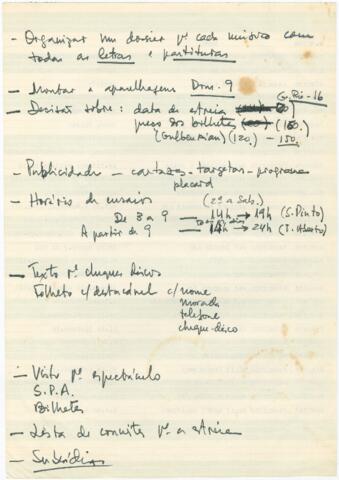 - Organizar um dossier pª cada músico com
todas as letras e partituras
- Montar a aparelhagem Dom. 9
- Decisão sobre: data de estreia
preço dos bilhetes (150.)
(Gulbenkian) (120.) - 150.
- Publicidade - cartazes - targetas - programa
placard
- Horário de ensaios (2ª a Sáb.)
De 3 a 9 → 14h → 19h (S. Pinto)
A partir de 9 → 14h → 24h (T. Aberto)
- Texto pª cheques discos
Folheto c/ destacável c/ nome
morada
telefone
cheque-disco
- Visto pª espectáculo
S.P.A.
Bilhetes
- Lista de convites pª a estreia
- Subsídios